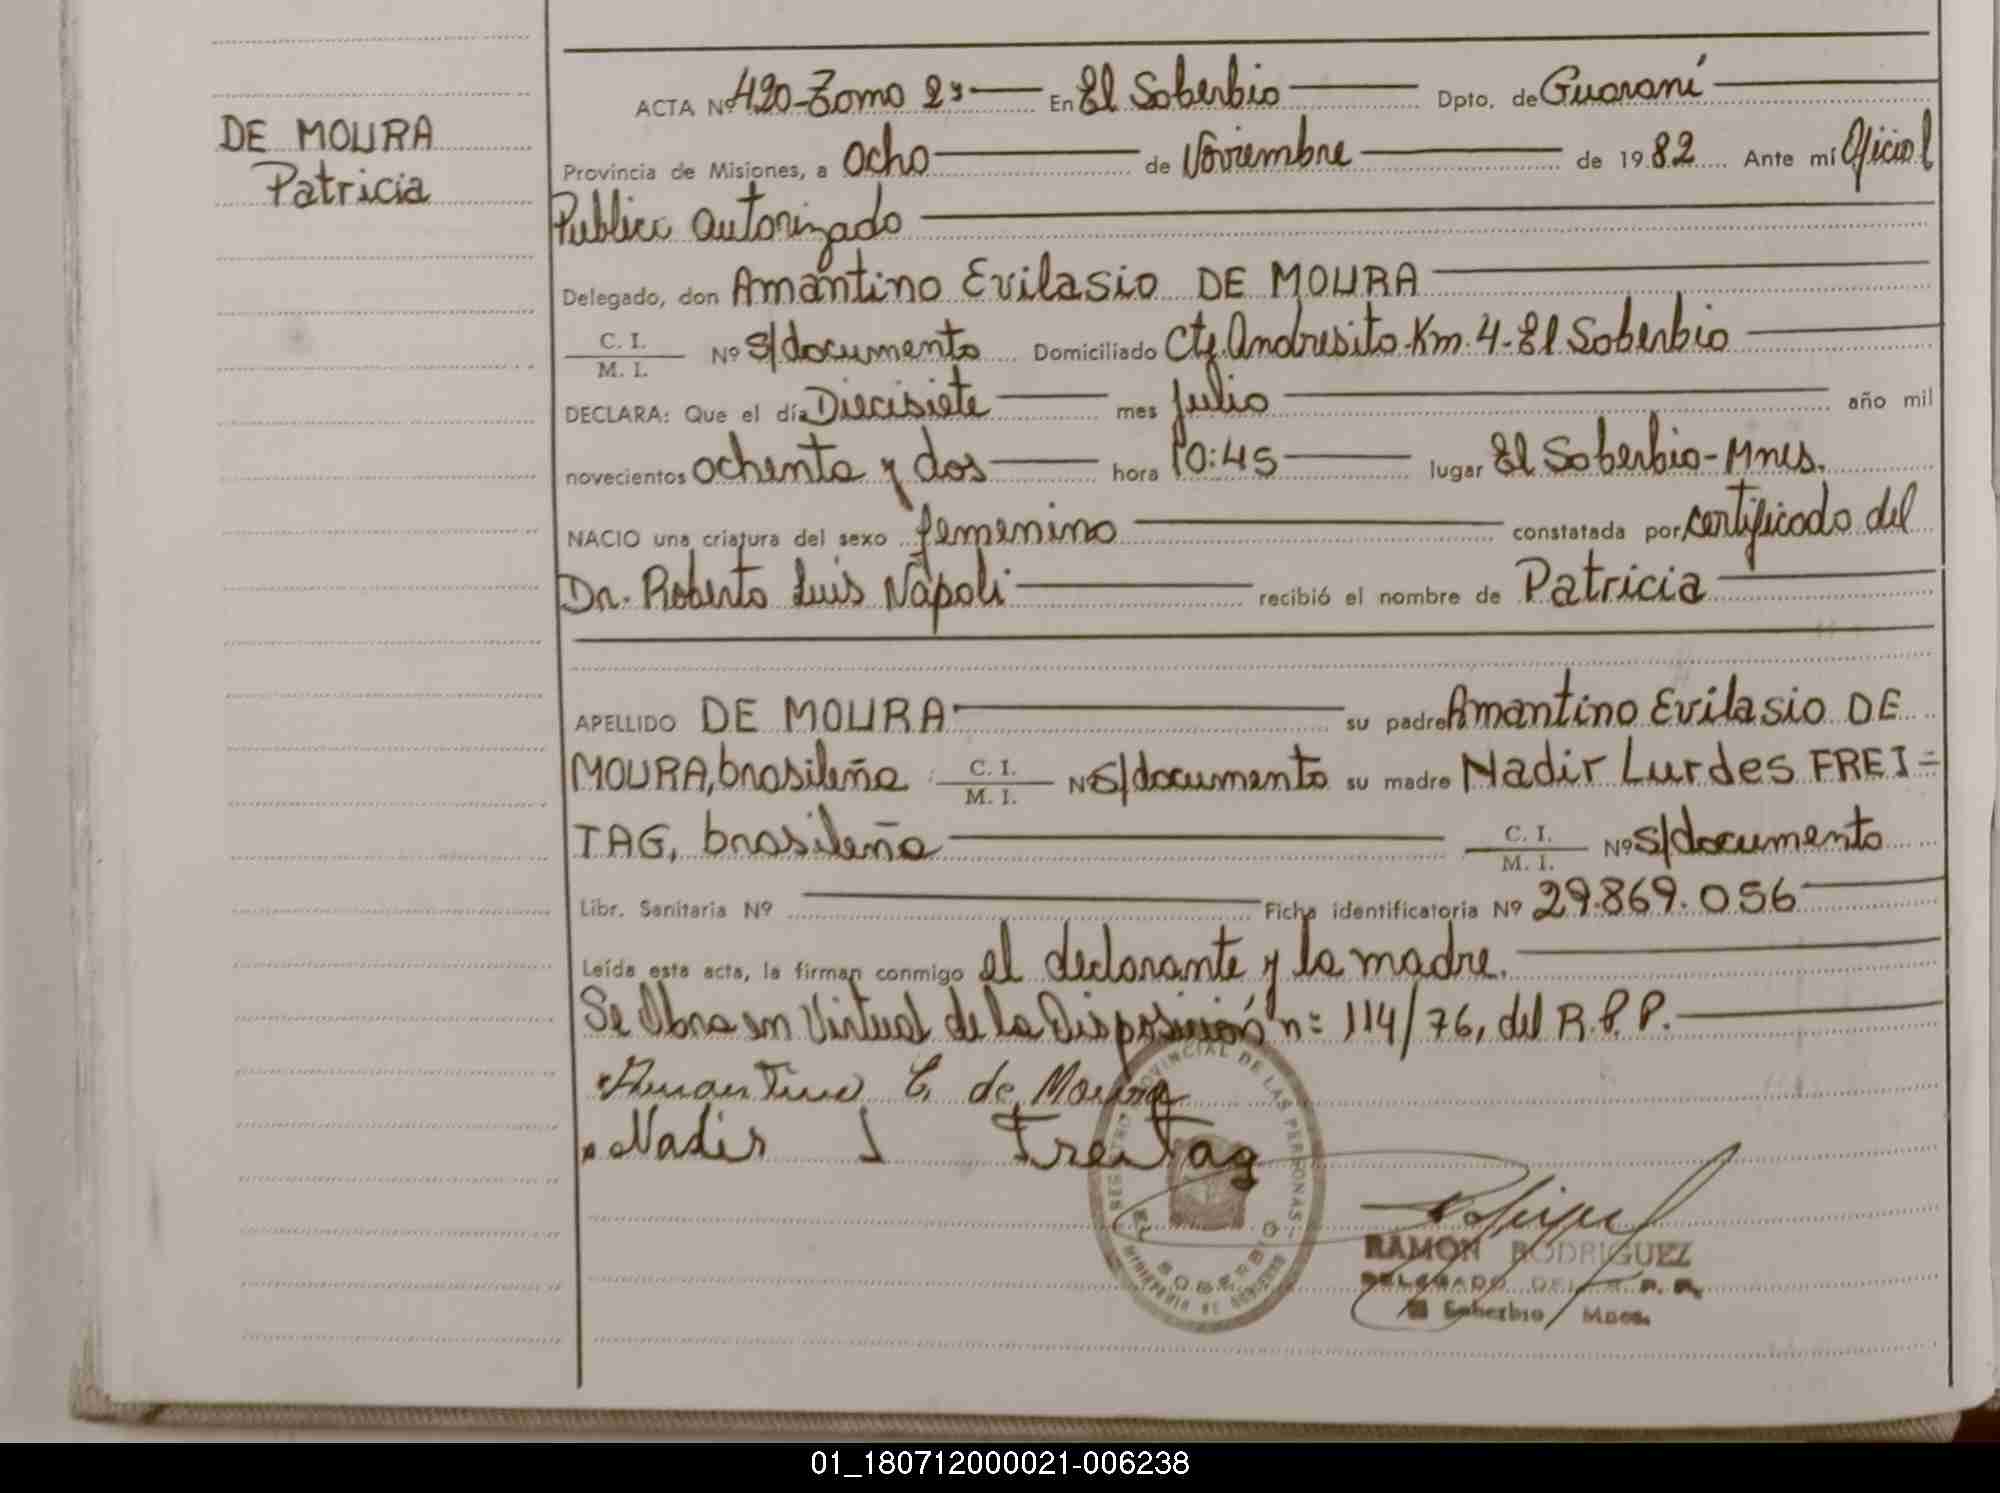 DE MOURA
Patricia
ACTA Nº 420-Tomo 2º En El Soberbio Dpto. de Guaraní
Provincia de Misiones, a Ocho de Noviembre de 1982 Ante mí Oficial
Publico autorizado
Delegado, don Amantino Evilasio DE MOURA
C. I.
M. I.
Nº s/documento Domiciliado Cte. Andresito-Km. 4-El Soberbio
DECLARA: Que el día Diecisiete mes Julio año mil
novecientos ochenta y dos hora 10:45 lugar El Soberbio-Mnes.
NACIO una criatura del sexo femenino constatada por certificado del
Dr. Roberto Luis Nápoli recibió el nombre de Patricia
APELLIDO DE MOURA su padre Amantino Evilasio DE
MOURA, brasileña C. I. M. I. Nº s/documento su madre Nadir Lurdes FREI=
TAG, brasileña C. I. M. I. Nº s/documento
Libr. Sanitaria Nº Ficha identificatoria Nº 29.869.056
Leída esta acta, la firman conmigo el declarante y la madre.
Se Obra en Virtud de la Disposición n= 114/76, del R.P.P.
Amantino E. de Moura
Nadir L Freitag
REGISTRO PROVINCIAL DE LAS PERSONAS
EL SOBERBIO
MINISTERIO DE GOBIERNO
RAMON RODRIGUEZ
DELEGADO DEL R. P. P.
El Soberbio Mnes.
01_180712000021-006238